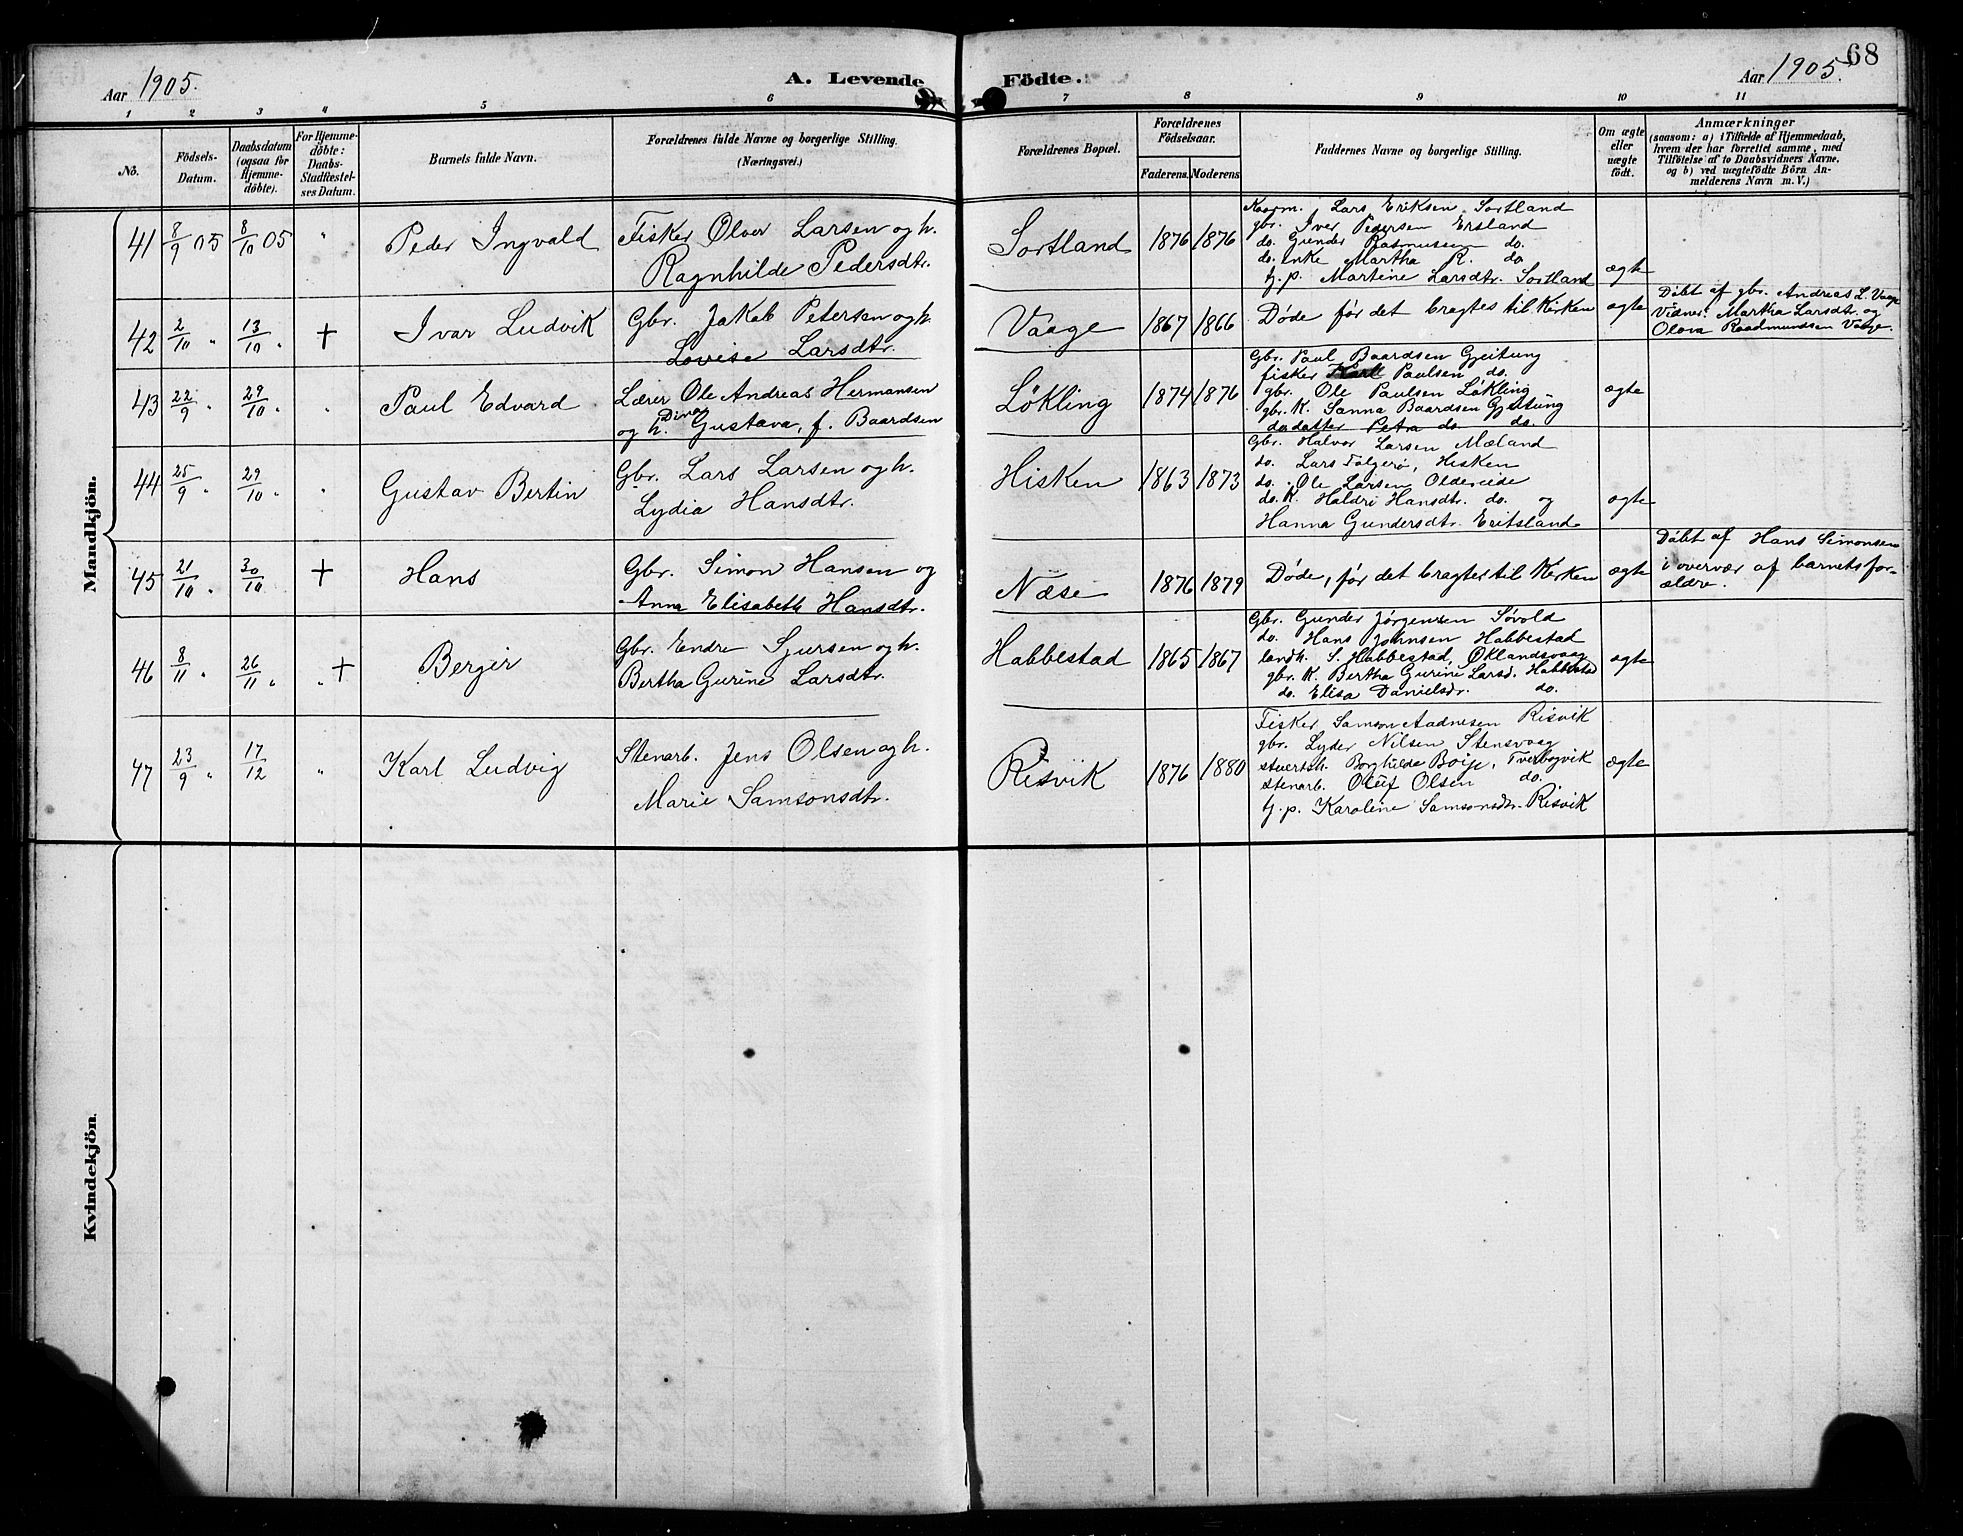 68
Aar 1905.
A. Levende Födte.
Aar 1905.
1 2 3 4 5 6 7 8 9 10 11
No.
Födsels-Datum.
Daabsdatum (ogsaa for Hjemme-döbte).
For Hjemme-döbte: Daabs-Stadfæstel-ses Datum.
Barnets fulde Navn.
Forældrenes fulde Navne og borgerlige Stilling.
(Næringsvei.)
Forældrenes Bopæl.
Forældrenes Födselsaar.
Faderens. Moderens.
Faddernes Navne og borgerlige Stilling.
Om ægte eller uægte födt.
Anmærkninger
(saasom: a) i Tilfælde af Hjemmedaab,
hvem der har forrettet samme, med
Tilföielse af to Daabsvidners Navne,
og b) ved uægtefödte Börn An-
melderens Navn m. V.)
Mandkjön.
41 8/9 05 8/10 05 " Peder Ingvald
Fisker Olver Larsen og h.
Ragnhilde Pedersdtr.
Sortland 1876 1876
Kaarm. Lars Eriksen Sortland
gbr. Iver Pedersen Ersland
do. Gunder Rasmusen do.
do. Enke Martha R. do
tj. p. Martine Larsdtr. Sortland
ægte
42 2/10 " 13/10 " + Ivar Ludvik
Gbr. Jakob Petersen og h.
Lovise Larsdtr.
Vaage 1867 1866
Døde før det bragtes til Kirken
ægte
Døbt af gbr. Andreas L. Vaage
Vidner: Martha Larsdtr. og
Olova Raadmundsen Vaage.
43 22/9 " 29/10 " " Paul Edvard
Lærer Ole Andreas Hermansen
og h. Dina Gustava, f. Baardsen
Løkling 1874 1876
Gbr. Paul Baardsen Gjeitung
fisker Karl Paulsen do.
gbr. Ole Paulsen Løkling
gbr. K. Sanna Baardsen Gjeitung
do datter Petra do do.
ægte
44 25/9 " 29/10 " " Gustav Bertin
Gbr. Lars Larsen og h.
Lydia Hansdtr.
Hisken 1863 1873
Gbr. Halvor Larsen Mæland
do. Lars Folgerø, Hisken
do. Ole Larsen Oldereide
do. K. Haldri Hansdtr. do. og
Hanna Gundersdtr. Eritsland
ægte
45 21/10 " 30/10 + Hans
Gbr. Simon Hansen og
Anna Elisabeth Hansdtr.
Næse 1876 1879
Døde, før det bragtes til Kirken
ægte
Døbt af Hans Simonsen
i overvær af barnets for-
ældre.
46 8/11 " 26/11 " " + Bergir
Gbr. Endre Sjursen og h.
Bertha Gurine Larsdtr.
Habbestad 1865 1867
Gbr. Gunder Jørgensen Søvold
do. Hans Johnsen Habbestad
landh. S. Habbestad, Øklandsvaag
gbr. K. Bertha Gurine Larsd. Habbestad
do. Elisa Danielsdr. do.
ægte
47 23/9 " 17/12 " Karl Ludvig
Stenarb. Jens Olsen og h.
Marie Samsonsdtr.
Risvik 1876 1880
Fisker Samson Aadnesen Risvik
gbr. Lyder Nilsen Stensvaag
stuertsh. Borghilde Boije, Tverbogvik
stenarb. Oluf Olsen do.
tj. p. Karoline Samsonsdtr. Risvik
ægte
Kvindekjön.